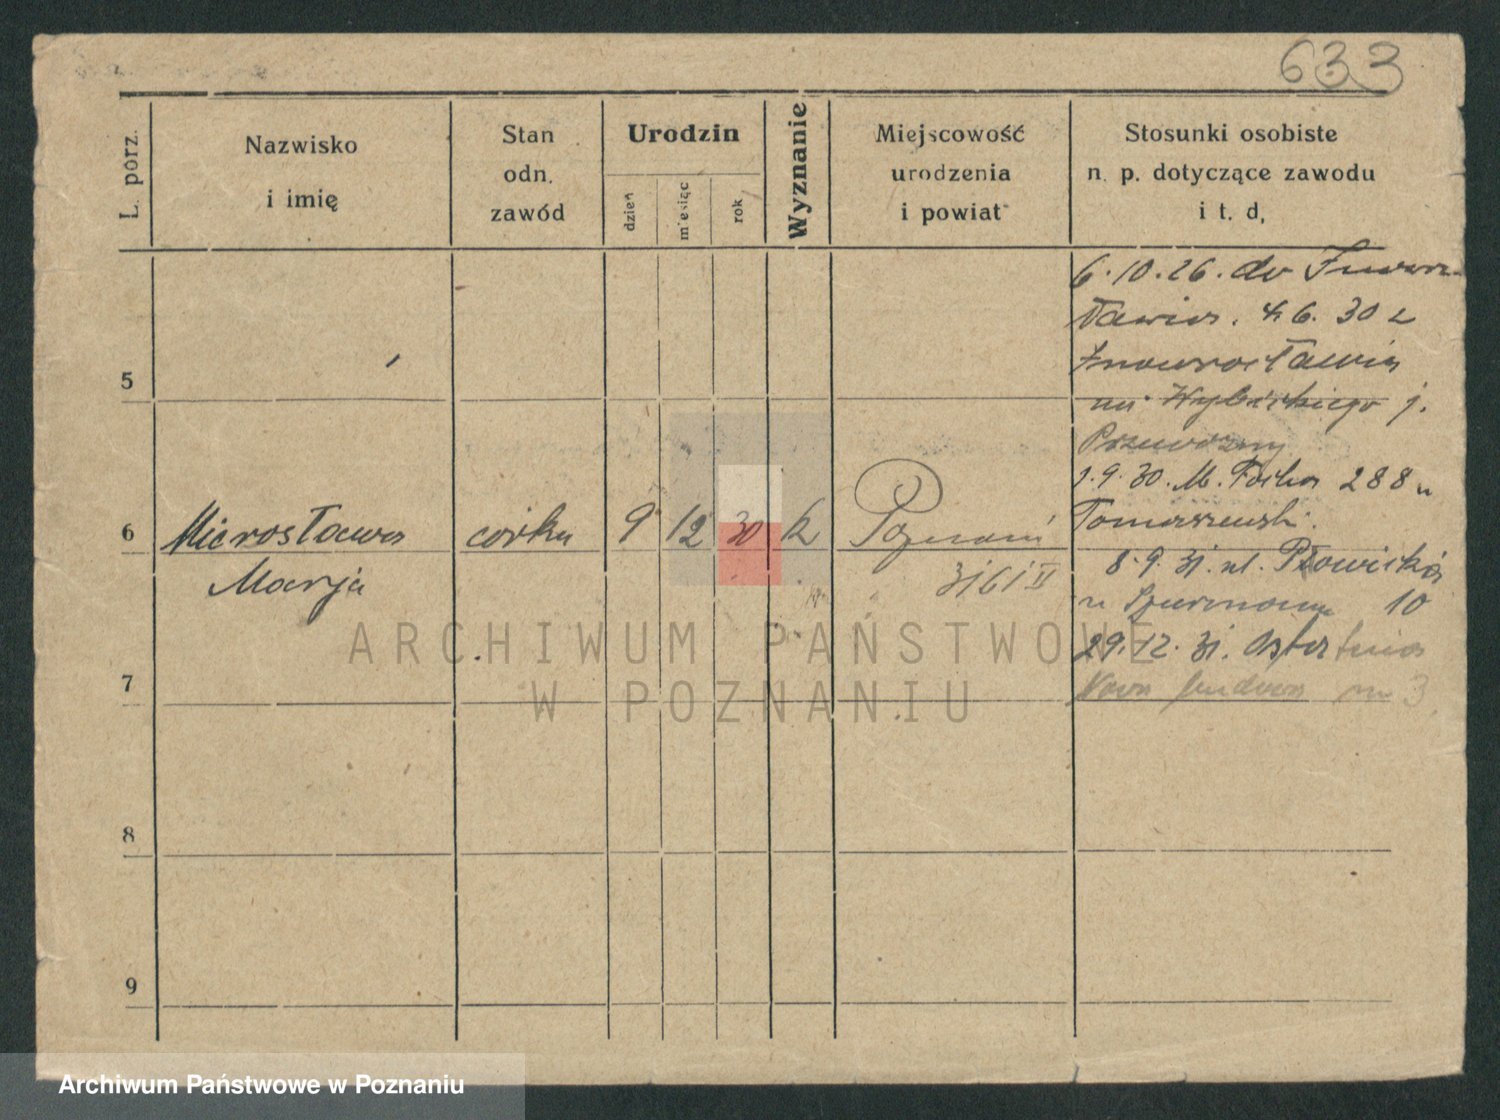 633
L. porz.
Nazwisko
i imię
Stan
odn.
zawód
Urodzin
dzień
miesiąc
rok
Wyznanie
Miejscowość
urodzenia
i powiat
Stosunki osobiste
n. p. dotyczące zawodu
i t. d,
6.10.26. do Inowro-
cławia. 4.6.30 z
Inowrocławia
Wybickiego j.
5
Przewoźny
1.9.30. M. Focha 288 u
6
Mierosława
córka
9
12
30
k
Poznań
Tomaszewski.
Marja
3161 V
8.9.31. ul.
u Szurmann 10
29.12.31. Ostatnia
7
Nowa budowa nr 3
8
9
ARCHIWUM PAŃSTWOWE
W POZNANIU
Archiwum Państwowe w Poznaniu